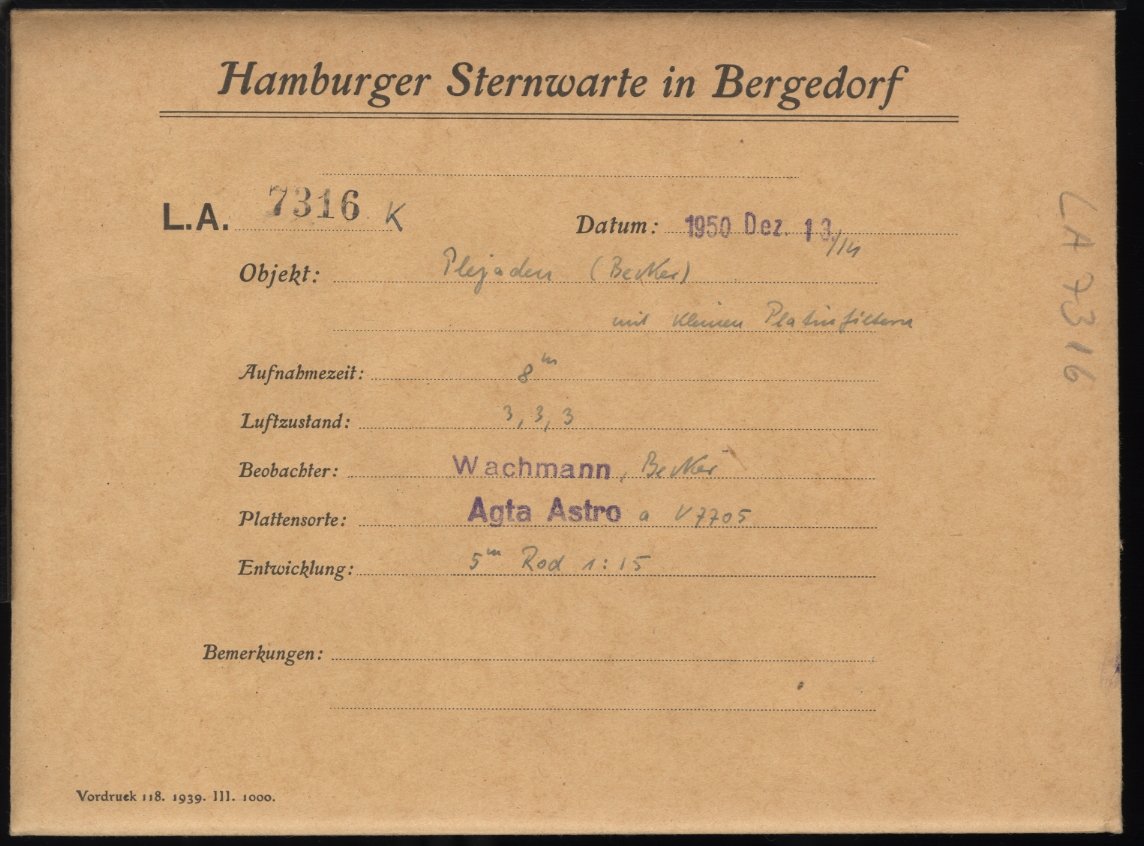 Hamburger Sternwarte in Bergedorf
L.A. 7316 K
Datum: 1950 Dez. 13/14
Objekt: Plejaden (Becker)
mit kleinen Platinfiltern
Aufnahmezeit: 8ᵐ
Luftzustand: 3, 3, 3
Beobachter: Wachmann, Becker
Plattensorte: Agfa Astro a V7705
Entwicklung: 5ᵐ Rod 1:15
Bemerkungen:
Vordruck 118. 1939. III. 1000.
LA 7316